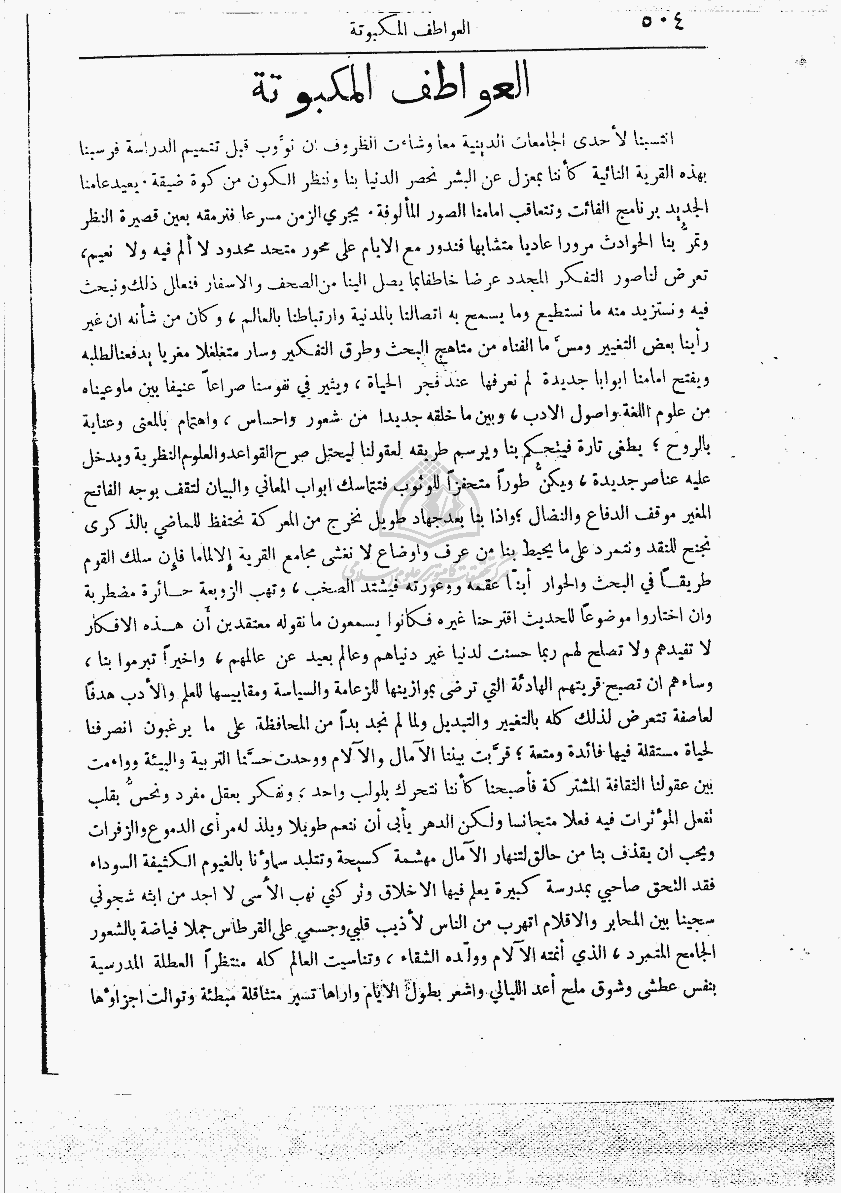 ٥٠٤
العواطف المكبوتة
العواطف المكبوتة
انتسبنا لأحدى الجامعات الدينية معا وشاءت الظروف ان نؤوب قبل تتميم الدراسة فرسبنا
بهذه القرية النائية كأننا بمعزل عن البشر نحصر الدنيا بنا وننظر الكون من كوة ضيقة . يعيد عامنا
الجديد برنامج الفائت وتتعاقب امامنا الصور المألوفة . يجري الزمن مسرعا فنرمقه بعين قصيرة النظر
وتمرُّ بنا الحوادث مرورا عاديا متشابها فندور مع الايام على محور متحد محدود لا ألم فيه ولا نعيم،
تعرض لنا صور التفكر المجدد عرضا خاطفا بما يصل الينا من الصحف والاسفار فنعال ذلك ونبحث
فيه ونستزيد منه ما نستطيع وما يسمح به اتصالنا بالمدنية وارتباطنا بالعالم ، وكان من شأنه ان غير
رأينا بعض التغيير ومسَّ ما الفناه من مناهج البحث وطرق التفكير وسار متغلغلا مغريا يدفعنا لطلبه
ويفتح امامنا ابوابا جديدة لم نعرفها عند فجر الحياة ، ويثير في نفوسنا صراعاً عنيفا بين ما وعيناه
من علوم اللغة واصول الادب ، وبين ما خلقه جديدا من شعور واحساس ، واهتمام بالمعنى وعناية
بالروح ؛ يطغى تارة فيتحكم بنا ويرسم طريقه لعقولنا ليحتل صرح القواعد والعلوم النظرية ويدخل
عليه عناصر جديدة ، ويكنُّ طوراً متحفزاً للوثوب فتتماسك ابواب المعاني والبيان لتقف بوجه الفاتح
المغير موقف الدفاع والنضال ؛ واذا بنا بعد جهاد طويل نخرج من المعركة نحتفظ للماضي بالذكرى
نجنح للنقد ونتمرد على ما يحيط بنا من عرف واوضاع لا نغشى مجامع القرية إلا لماما فإن سلك القوم
طريقاً في البحث والحوار أبنّا عقمه ووعورته فيشتد الصخب ، وتهب الزوبعة حائرة مضطربة
وان اختاروا موضوعاً للحديث اقترحنا غيره فكانوا يسمعون ما نقوله معتقدين أن هذه الافكار
لا تفيدهم ولا تصلح لهم ربما حسنت لدنيا غير دنياهم وعالم بعيد عن عالمهم ، واخيراً تبرموا بنا ،
وساءهم ان تصبح قريتهم الهادئة التي ترضى بموازينها للزعامة والسياسة ومقاييسها للعلم والأدب هدفًا
لعاصفة تتعرض لذلك كله بالتغيير والتبديل ولما لم نجد بداً من المحافظة على ما يرغبون انصرفنا
لحياة مستقلة فيها فائدة ومتعة ؛ قرَّبت بيننا الآمال والآلام ووحدت حسَّنا التربية والبيئة وواءمت
بين عقولنا الثقافة المشتركة فأصبحنا كأننا نتحرك بلولب واحد ، ونفكر بعقل مفرد ونحسُّ بقلب
تفعل المؤثرات فيه فعلا متجانسا ولكن الدهر يأبى أن ننعم طويلا ويلذ له مرأى الدموع والزفرات
ويحب ان يقذف بنا من حالق لتنهار الآمال مهشمة كسيحة وتتلبد سماؤنا بالغيوم الكثيفة السوداء
فقد التحق صاحبي بمدرسة كبيرة يعلم فيها الاخلاق وتركني نهب الأسى لا اجد من ابثه شجوني
سجينا بين المحابر والاقلام اتهرب من الناس لأذيب قلبي وجسمي على القرطاس جملا فياضة بالشعور
الجامح المتمرد ، الذي أنمته الآلام وولّده الشقاء ، وتناسيت العالم كله منتظراً العطلة المدرسية
بنفس عطشى وشوق ملح أعد الليالي واشعر بطول الأيّام واراها تسير متثاقلة مبطئة وتوالت اجزاؤها